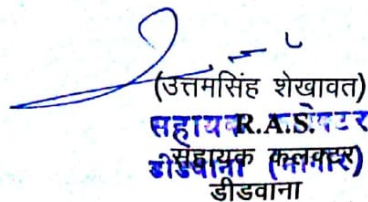 (उत्तमसिंह शेखावत)
सहायक R.A.S. कलेक्टर
सहायक कलक्टर
डीडवाना (नागौर)
डीडवाना